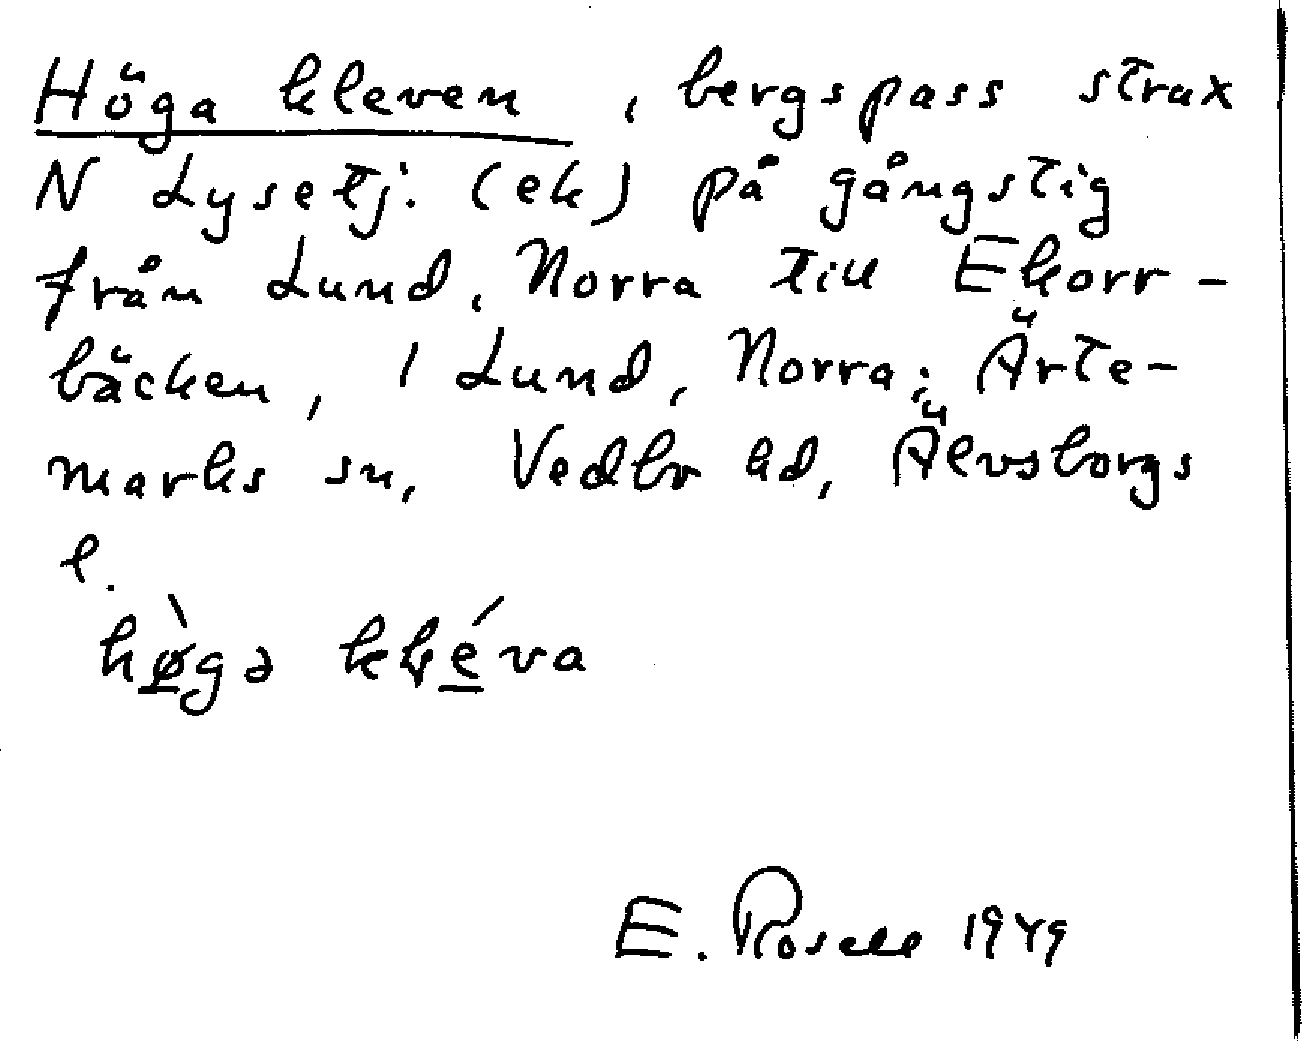 Höga kleven, bergspass strax
N Lysetj. (ek) på gångstig
från Lund, Norra till Ekorr-
bäcken, i Lund, Norra; Ärte-
marks sn, Vedbo hd, Älvsborgs
l.
hø̀gə kḷéva
E. Rosell 1949